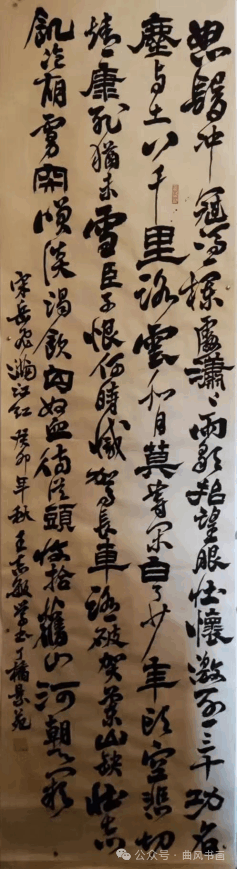 怒髮冲冠凭欄處瀟瀟雨歇抬望眼壮懷激烈三十功名
塵与土八千里路雲和月莫等闲白了少年头空悲切
靖康恥猶未雪臣子恨何時滅驾長車踏破贺蘭山缺壮志
飢飡胡虜 談渴飲匈奴血待從頭收拾舊山河朝天闕
宋岳飛滿江红 癸卯年秋 王志敏 书于橘景苑
公众号·曲风书画